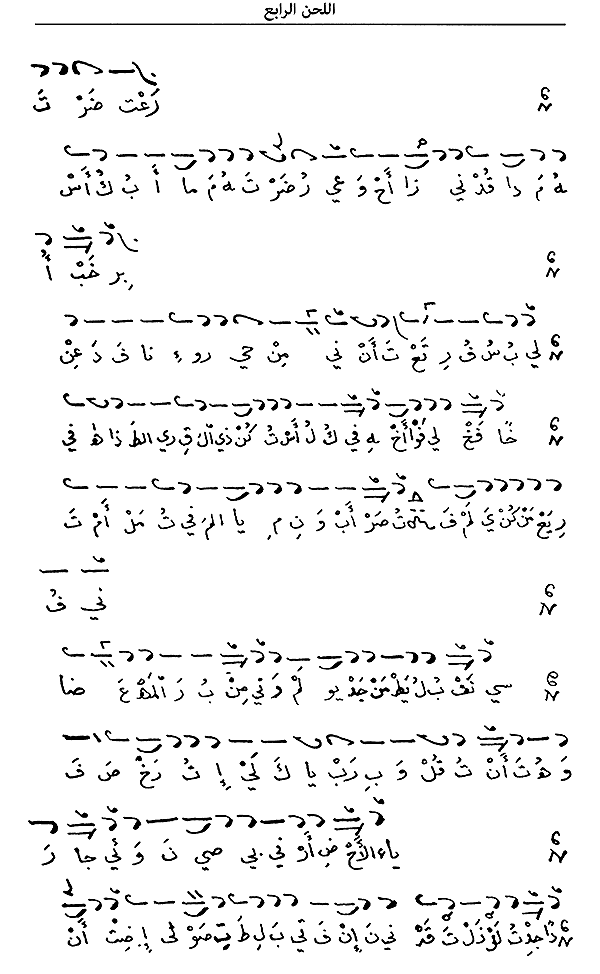 اللحن الرابع
رَعْت ضَرْ تَ
هُ مَ دا قُدْ ني زا أَحْ وَ عي رُ ضَرْ تَ هُ مَ ما أَ بُ كُ أَسْ
بِر خَبْ أُ
لي بُ سُ فُ رِ تَعْ تَ أَنْ ني مِنْ حي رو ءِ نا فَ دَ عِنْ
خًا فَخْ لي فَوْ أَخْ هِ في كُ لُ أَسْ تُ كُنْ ذي الَ قِ ري الطَ ذا هَ في
رِ يَعْ مَنْ كُنْ يَ لَمْ فَ تُ صَرْ أَبْ وَ نِ مِ يا المَ في تُ مَلْ أَمْ تَ
ني فُ
سي نَفْ بُ لُ يَطْ مَنْ جَدْ يو لَمْ وَ ني مِنْ بُ رَ الْمَهْ عَ ضا
وَ هُ تَ أَنْ تُ قُلْ وَ بِ رَبْ يا كَ لَيْ إِ تُ رَخْ صَ فَ
ياء الأَحْ ضِ أَرْ في بي صي نَ وَ ئي جا رَ
ذا جِدْ تُ لَلْ ذَلْ تَ قَدْ ني نَ إِنْ فَ تي بَ لِ طَ تِ صَوْ لى إِ صِتْ أَنْ